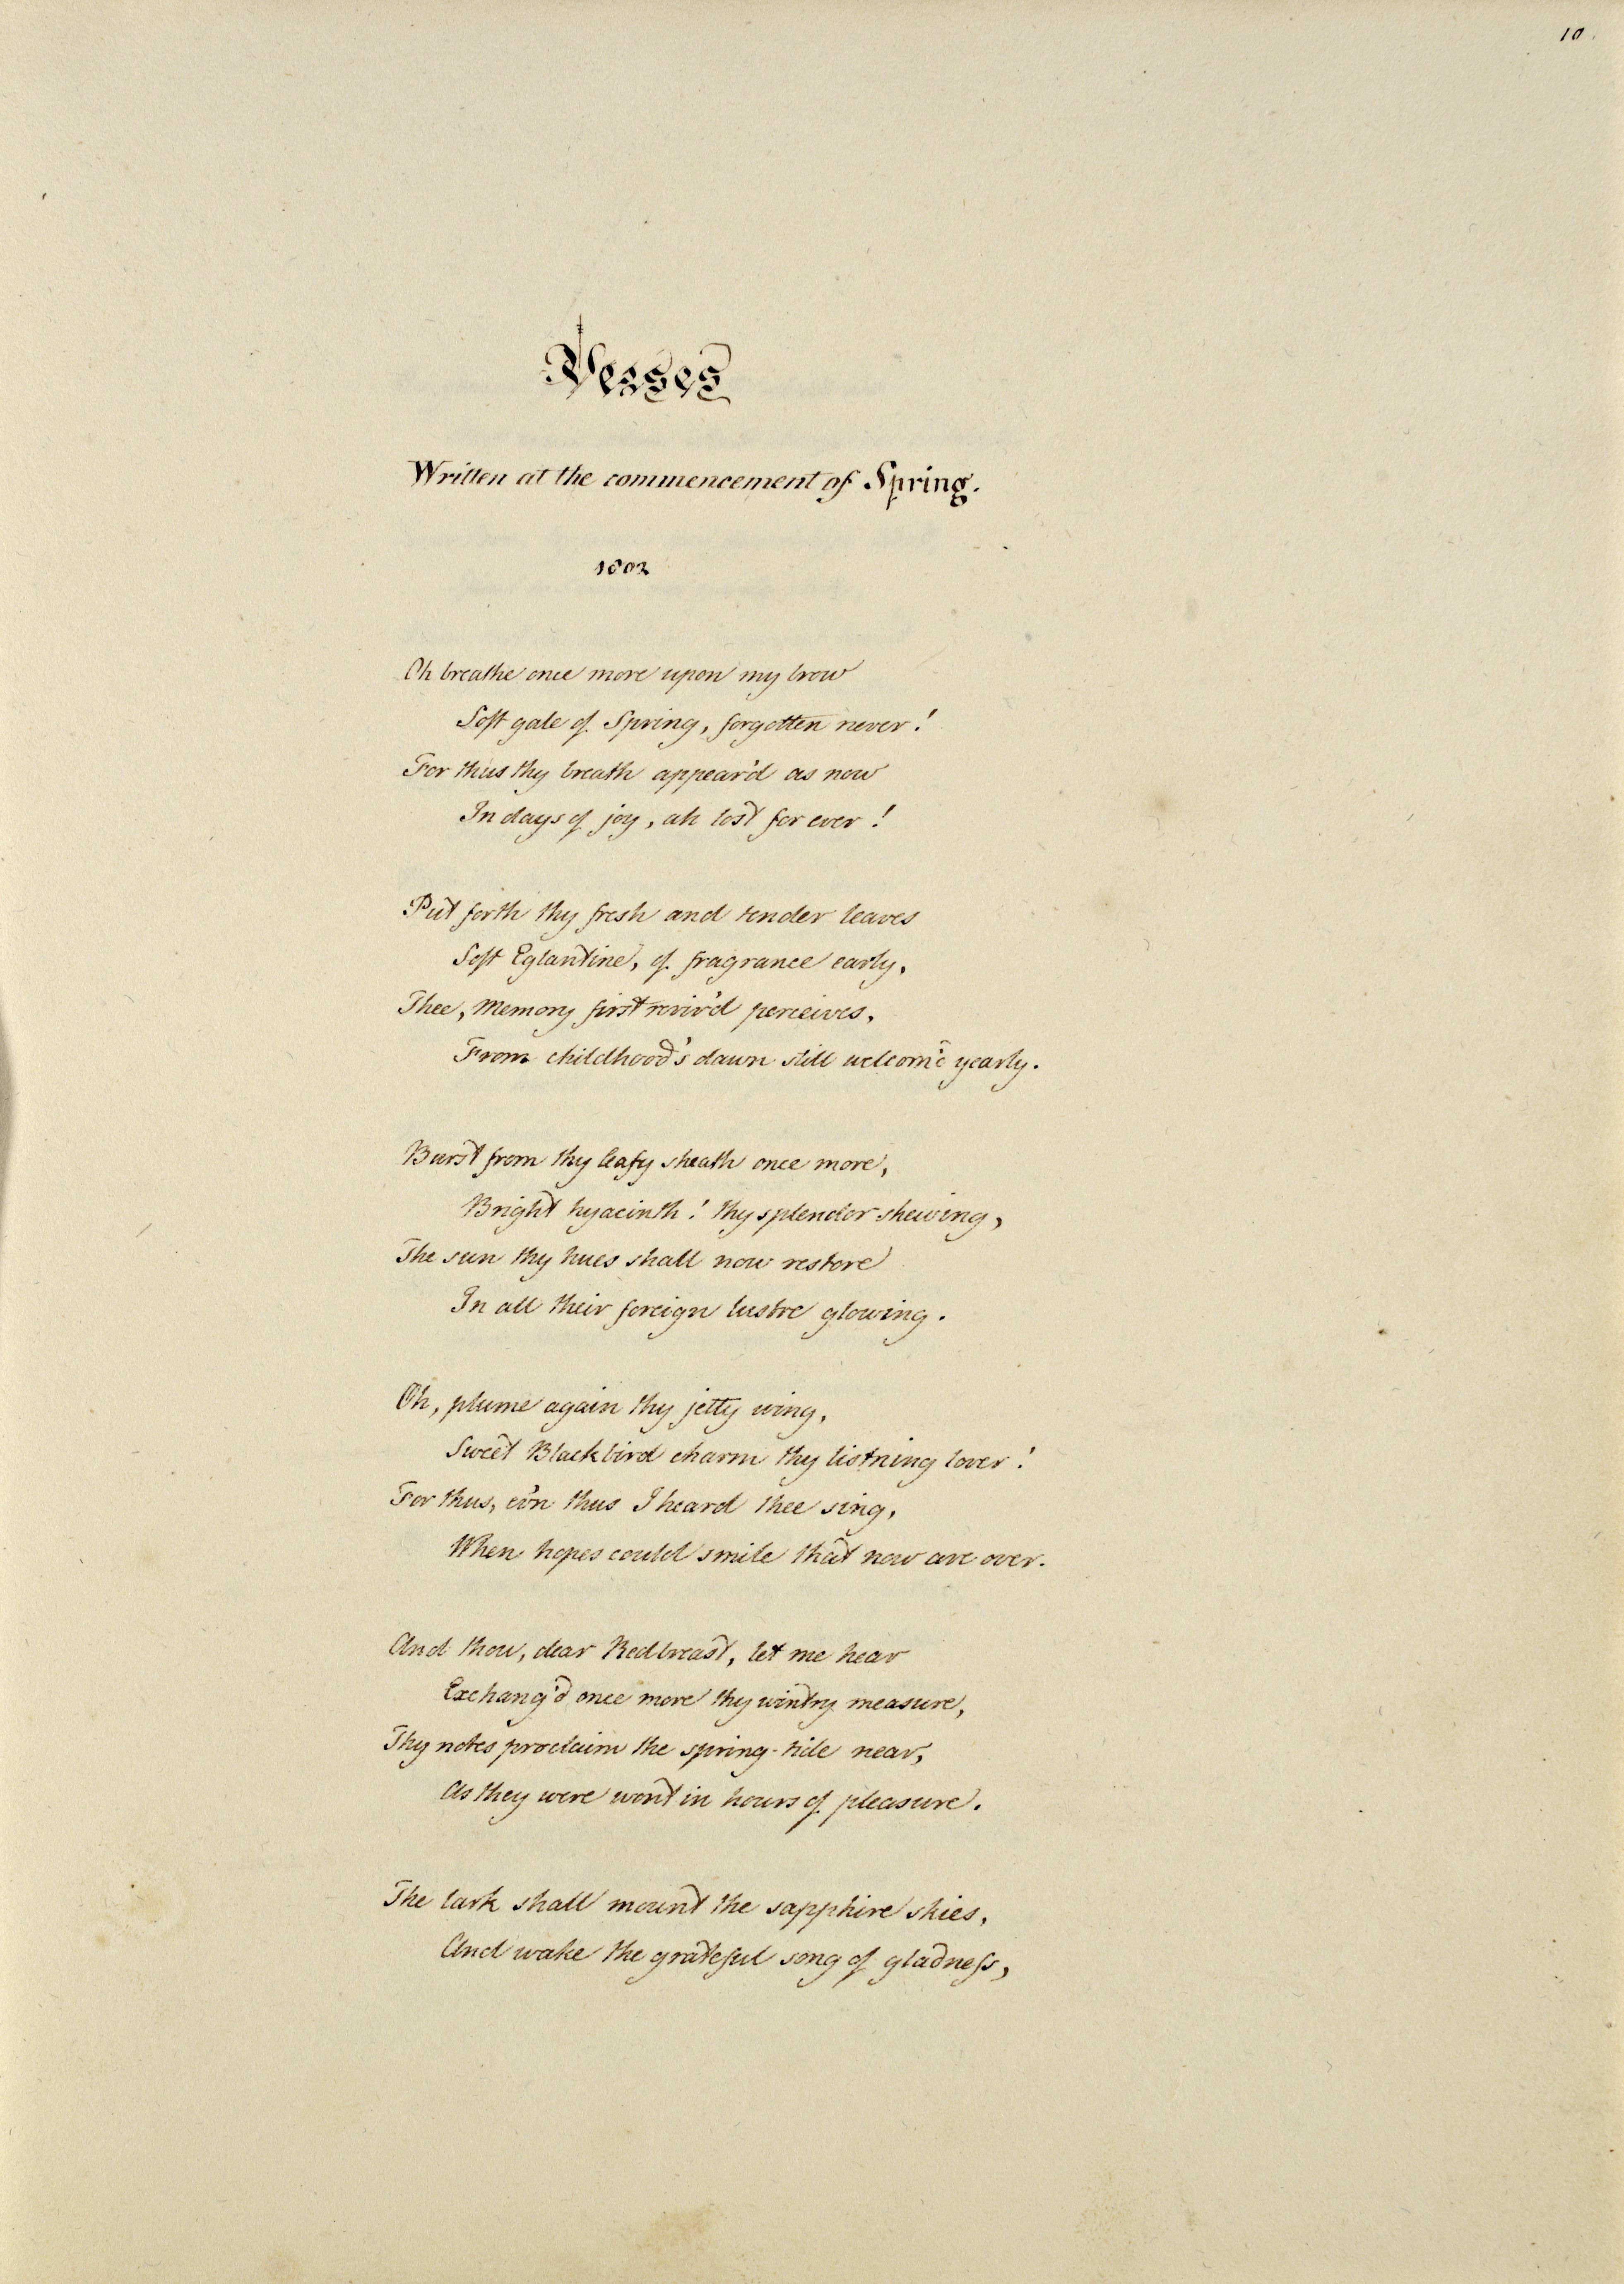 10.
Verses
Written at the commencement of Spring.
1802
Oh breathe once more upon my brow
Soft gale of Spring, forgotten never!
For thus thy breath appear'd as now
In days of joy, ah lost for ever!
Put forth thy fresh and tender leaves
Soft Eglantine, of fragrance early,
Thee, Memory first reviv'd perceives,
From childhood's dawn still welcom'd yearly.
Burst from thy leafy sheath once more,
Bright hyacinth! thy splendor shewing,
The sun thy hues shall now restore
In all their foreign lustre glowing.
Oh, plume again thy jetty wing,
Sweet Blackbird charm thy listning lover!
For thus, ev'n thus I heard thee sing,
When hopes could smile that now are over.
And thou, dear Redbreast, let me hear
Exchang'd once more thy wintry measure,
Thy notes proclaim the spring-tide near,
As they were wont in hours of pleasure.
The lark shall mount the sapphire skies,
And wake the grateful song of gladneſs,